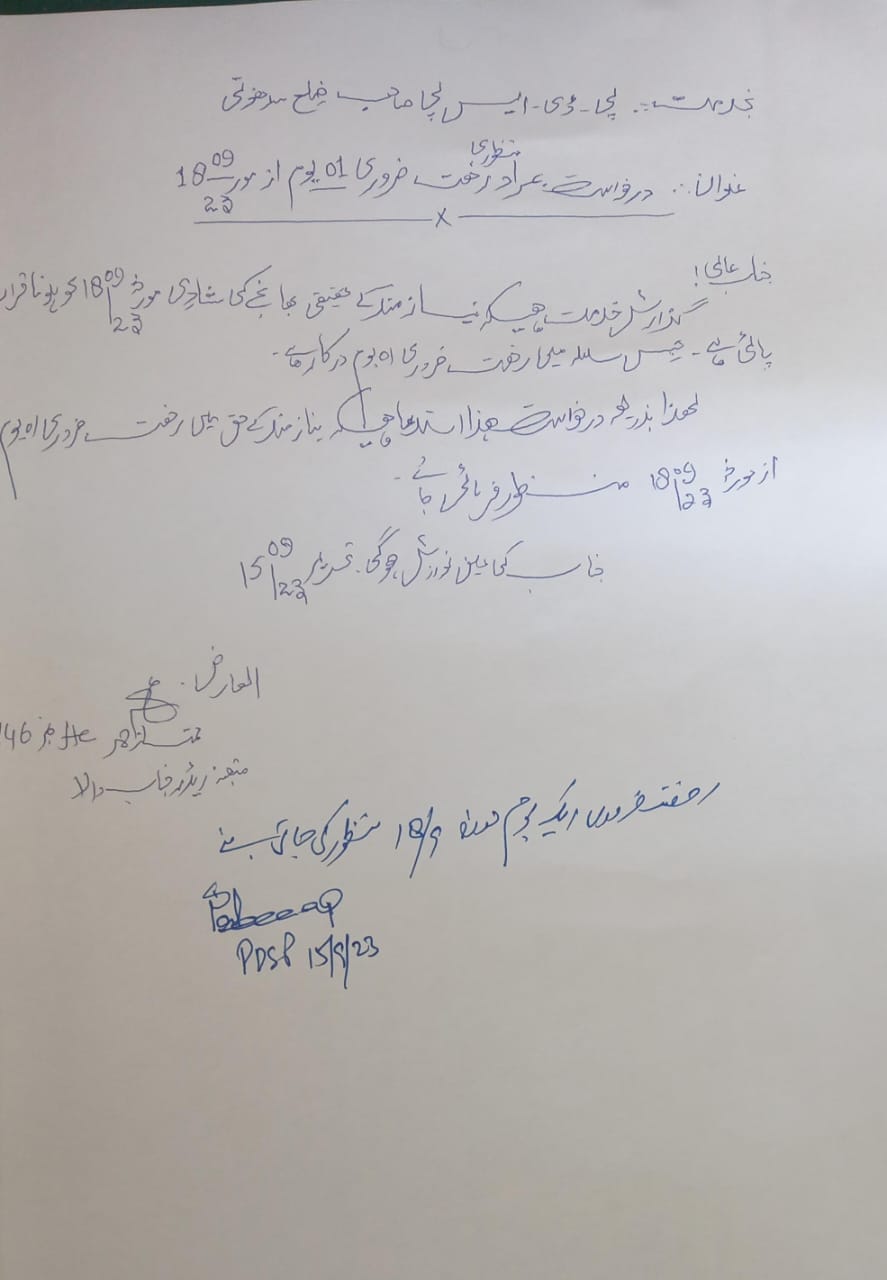 بخدمت :۔ پی ۔ ڈی ۔ ایس پی صاحب ضلع سدھنوتی
عنوان :۔ درخواست بمراد منظوری رخصت ضروری 01 یوم از مورخہ 18/09/23
جناب عالی!
گذارش خدمت ہیکہ نیازمند کے حقیقی بھانجے کی شادی مورخہ 18/09/23 کو ہونا قرار
پائی ہے ۔ جس سلسلہ میں رخصت ضروری 01 یوم درکار ہے ۔
لھذا بذریعہ درخواست ھذا استدعا ہیکہ نیازمند کے حق میں رخصت ضروری 01 یوم
از مورخہ 18/09/23 منظور فرمائی جائے ۔
جناب کی عین نوازش ہوگی ۔ تحریر 15/09/23
العارض ۔
HC نمبر 46
متعینہ ریڈر جناب والا
رخصت ضروری ایک یوم مورخہ 18/9 منظور کی جاتی ہے
PDSP 15/9/23